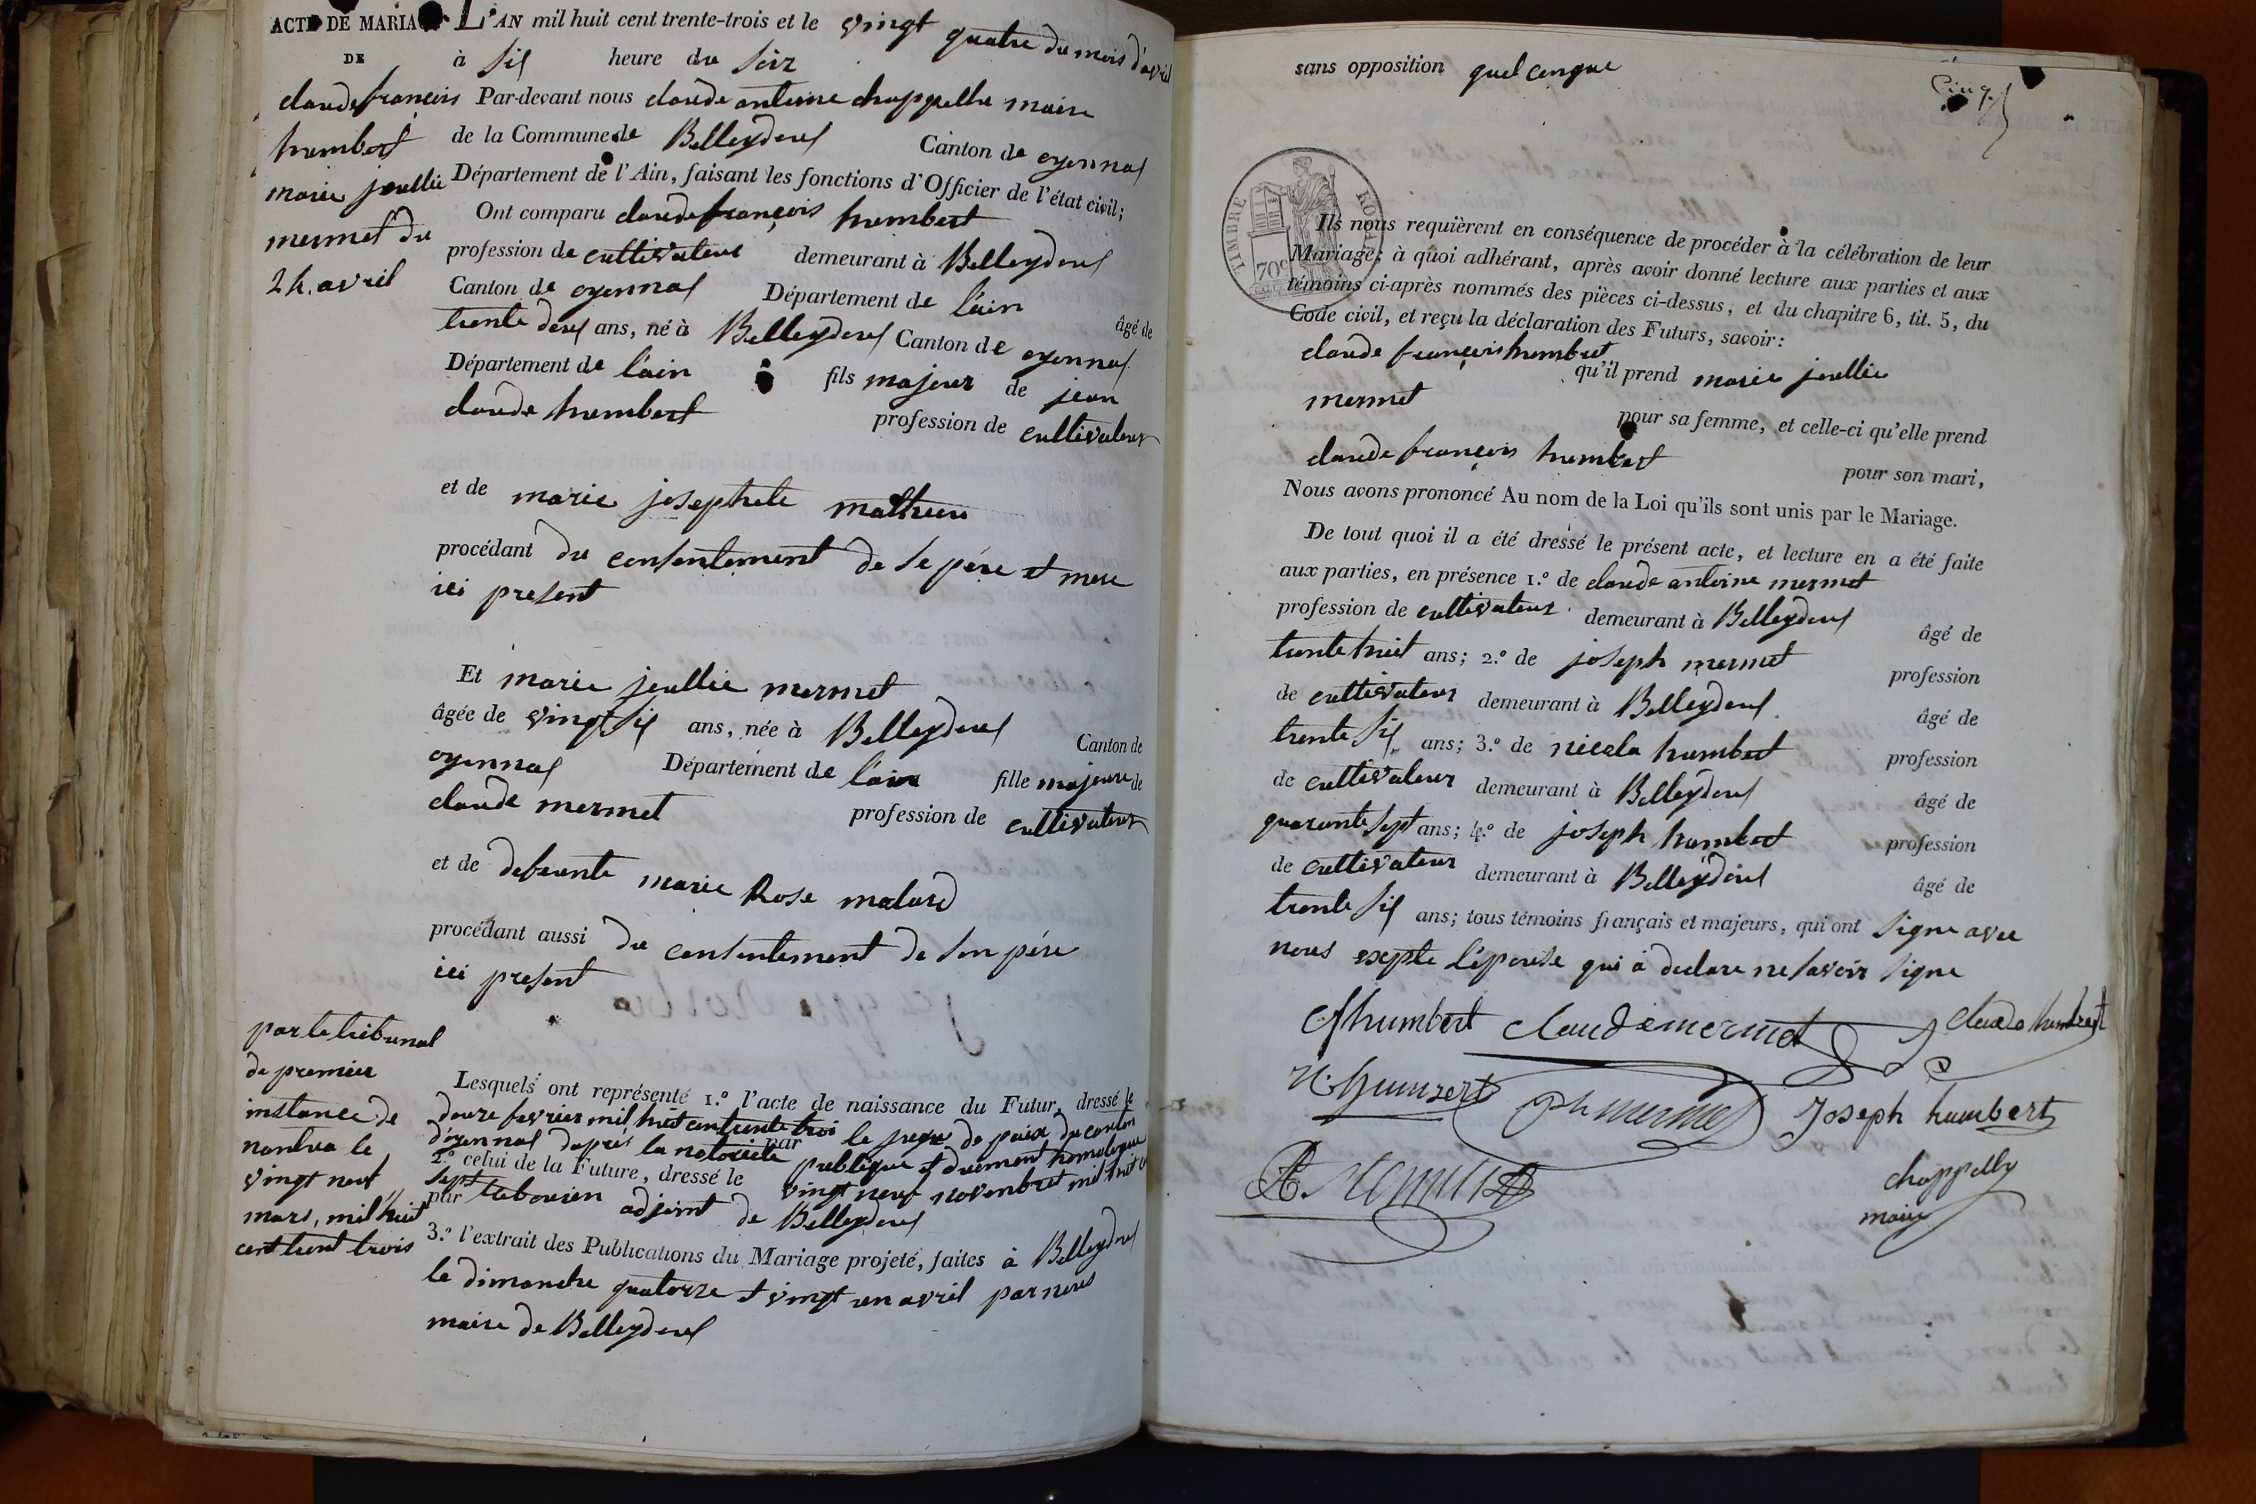 ACTE DE MARIAGE L'AN mil huit cent trente-trois et le vingt quatre du mois d'avril
DE
à six heure du soir
claude françois Par-devant nous claude antoine chappellu maire
humbert de la Commune de Belleydoux Canton de oyonnax
marie jeullie Département de l'Ain, faisant les fonctions d'Officier de l'état civil;
mermet du Ont comparu claude françois humbert
24. avril profession de cultivateur demeurant à Belleydoux
Canton de oyonnax Département de l'ain âgé de
trente deux ans, né à Belleydoux Canton de oyonnax
Département de l'ain fils majeur de jean
claude humbert profession de cultivateur
et de marie josephete mathieu
procédant du consentement de se père et mere
ici present
Et marie jeullie mermet
âgée de vingt six ans, née à Belleydoux Canton de
oyonnax Département de l'ain fille majeure de
claude mermet profession de cultivateur
et de defeunte marie Rose molard
procédant aussi du consentement de son père
ici present
par le tribunal
de premier
instance de
nantua le
vingt neuf
mars, mil huit
cent trent trois
Lesquels ont représenté 1.º l'acte de naissance du Futur, dressé le
douze fevrier mil huit cent trente troi par le juge de paix du canton
d'oyonnax dapres la notoriete publique et duement homologue
2.º celui de la Future, dressé le vingt neuf novembre mil huit c
sept par adjoint de Belleydoux
3.º l'extrait des Publications du Mariage projeté, faites à Belleydoux
le dimanche quatorze et vingt un avril par nous
maire de Belleydoux
sans opposition quelconque
Cinq
TIMBRE ROYAL
70c
Ils nous requièrent en conséquence de procéder à la célébration de leur
Mariage; à quoi adhérant, après avoir donné lecture aux parties et aux
témoins ci-après nommés des pièces ci-dessus, et du chapitre 6, tit. 5, du
Code civil, et reçu la déclaration des Futurs, savoir:
claude françois humbert qu'il prend marie jeullie
mermet pour sa femme, et celle-ci qu'elle prend
claude françois humbert pour son mari,
Nous avons prononcé Au nom de la Loi qu'ils sont unis par le Mariage.
De tout quoi il a été dressé le présent acte, et lecture en a été faite
aux parties, en présence 1.º de claude antoine mermet
profession de cultivateur demeurant à Belleydoux âgé de
trente huit ans; 2.º de joseph mermet profession
de cultivateur demeurant à Belleydoux âgé de
trente six ans; 3.º de nicola humbert profession
de cultivateur demeurant à Belleydoux âgé de
quarante sept ans; 4.º de joseph humbert profession
de cultivateur demeurant à Belleydoux âgé de
trente six ans; tous témoins français et majeurs, qui ont signe avec
nous exepte l'épouse qui à declare ne savoir signe
Cf humbert claude mermet claude humbert
N. humbert mermet Joseph humbert
chappellu
maire